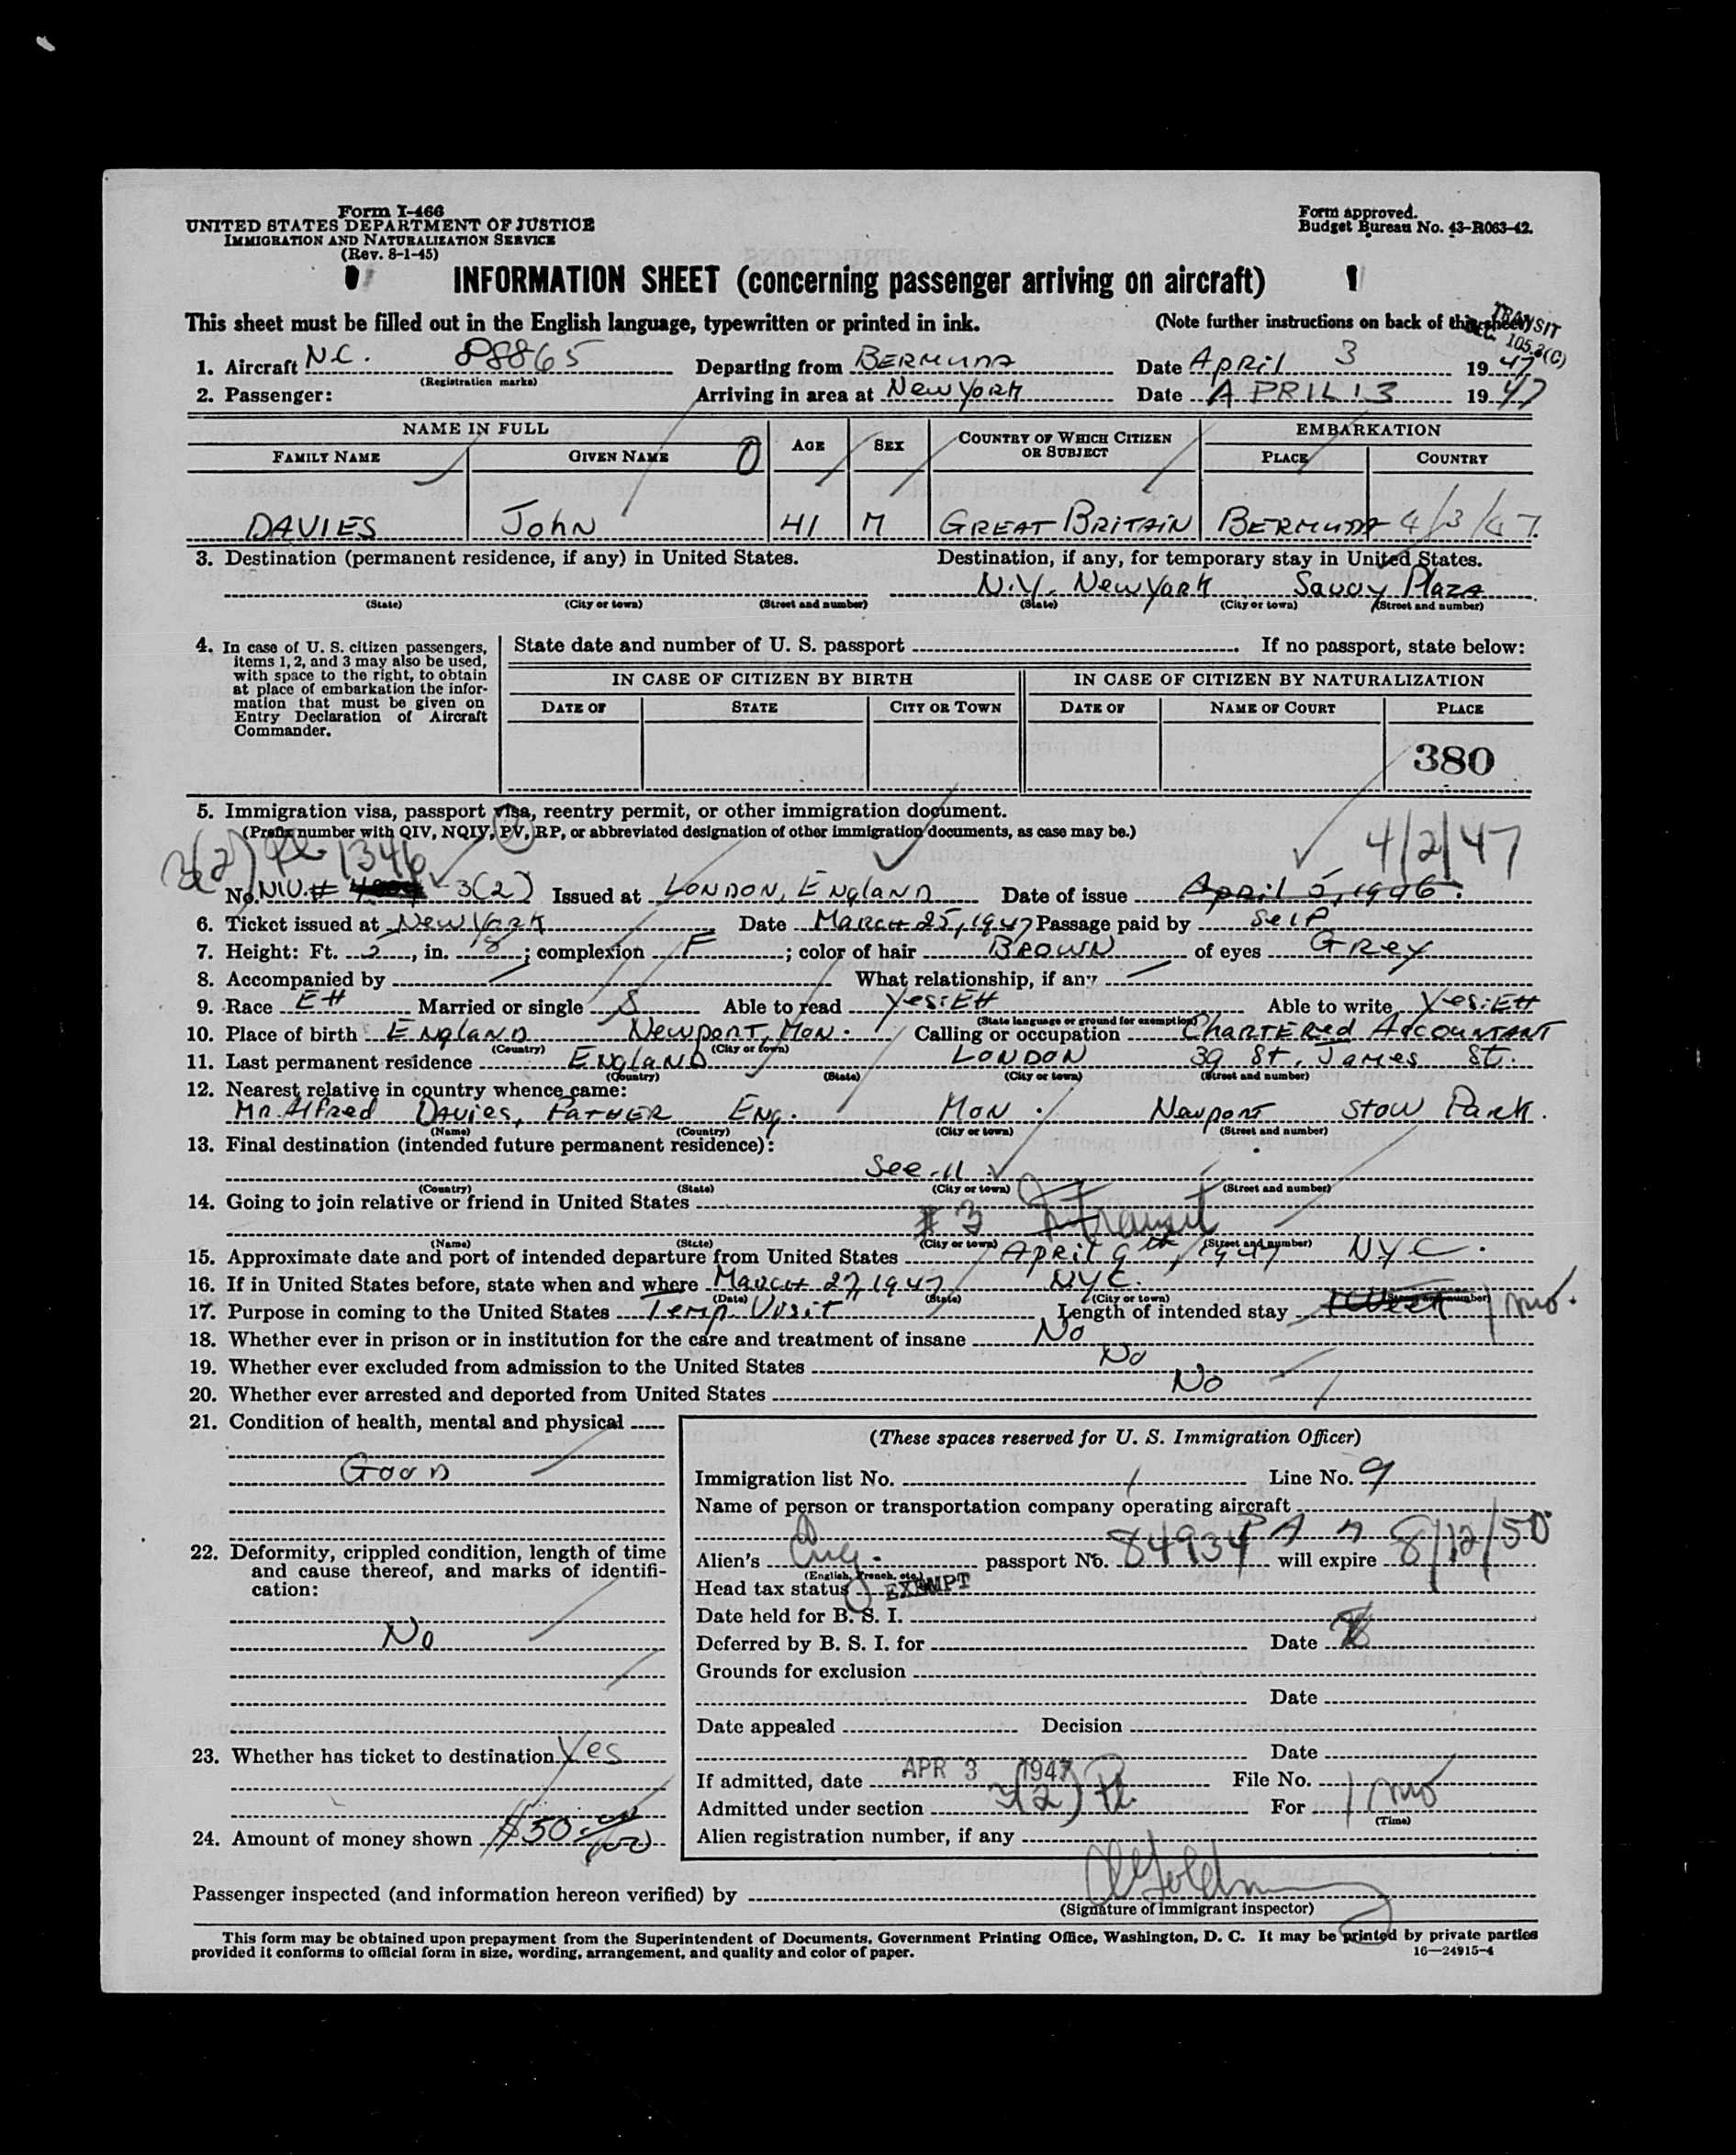 Form I-466
UNITED STATES DEPARTMENT OF JUSTICE
IMMIGRATION AND NATURALIZATION SERVICE
(Rev. 8-1-45)
Form approved.
Budget Bureau No. 43-R063-42.
INFORMATION SHEET (concerning passenger arriving on aircraft)
This sheet must be filled out in the English language, typewritten or printed in ink. (Note further instructions on back of this sheet)
TRANSIT
SEC. 105.3(C)
1. Aircraft N.C. 88865 Departing from BERMUDA Date April 3 1947
(Registration marks)
2. Passenger: Arriving in area at New York Date APRIL 3 1947
NAME IN FULL AGE SEX COUNTRY OF WHICH CITIZEN OR SUBJECT EMBARKATION
FAMILY NAME GIVEN NAME PLACE COUNTRY
DAVIES John 41 M GREAT BRITAIN BERMUDA 4/3/47.
3. Destination (permanent residence, if any) in United States. Destination, if any, for temporary stay in United States.
N.Y. New York Savoy Plaza
(State) (City or town) (Street and number) (State) (City or town) (Street and number)
4. In case of U. S. citizen passengers, items 1, 2, and 3 may also be used, with space to the right, to obtain at place of embarkation the information that must be given on Entry Declaration of Aircraft Commander.
State date and number of U. S. passport If no passport, state below:
IN CASE OF CITIZEN BY BIRTH IN CASE OF CITIZEN BY NATURALIZATION
DATE OF STATE CITY OR TOWN DATE OF NAME OF COURT PLACE
380
5. Immigration visa, passport visa, reentry permit, or other immigration document.
(Prefix number with QIV, NQIV, PV, RP, or abbreviated designation of other immigration documents, as case may be.)
3(2) 1346 4/2/47
No. N.I.V. # 3(2) Issued at LONDON, ENGLAND Date of issue April 5, 1946.
6. Ticket issued at New York Date March 25, 1947 Passage paid by Self
7. Height: Ft. 5, in. 8; complexion F; color of hair BROWN of eyes GREY
8. Accompanied by What relationship, if any
9. Race EH Married or single S Able to read Yes: EH Able to write Yes: EH
(State language or ground for exemption)
10. Place of birth ENGLAND Newport, Mon. Calling or occupation CHARTERED ACCOUNTANT
(Country) (City or town)
11. Last permanent residence ENGLAND LONDON 39 St. James St.
(Country) (State) (City or town) (Street and number)
12. Nearest relative in country whence came:
Mr. Alfred Davies, FATHER Eng. Mon. Newport Stow Park.
(Name) (Country) (City or town) (Street and number)
13. Final destination (intended future permanent residence):
See 11
(Country) (State) (City or town) (Street and number)
14. Going to join relative or friend in United States
# 3 Transit
(Name) (State) (City or town) (Street and number)
15. Approximate date and port of intended departure from United States April 9th, 1947 NYC.
16. If in United States before, state when and where March 27, 1947 NYC.
(Date) (State) (City or town) (Street and number)
17. Purpose in coming to the United States Temp. Visit Length of intended stay 1 Week 1 mo.
18. Whether ever in prison or in institution for the care and treatment of insane No
19. Whether ever excluded from admission to the United States No
20. Whether ever arrested and deported from United States No
21. Condition of health, mental and physical
Good
22. Deformity, crippled condition, length of time and cause thereof, and marks of identification:
No
23. Whether has ticket to destination Yes
24. Amount of money shown $50.00/100
(These spaces reserved for U. S. Immigration Officer)
Immigration list No. 1 Line No. 9
Name of person or transportation company operating aircraft
P A A
Alien's Eng. passport No. 84934 will expire 8/12/50
(English, French, etc.)
Head tax status EXEMPT
Date held for B. S. I.
Deferred by B. S. I. for Date
Grounds for exclusion
Date
Date appealed Decision
Date
If admitted, date APR 3 1947 File No.
Admitted under section 3(2) For 1 mo
(Time)
Alien registration number, if any
Passenger inspected (and information hereon verified) by
(Signature of immigrant inspector)
This form may be obtained upon prepayment from the Superintendent of Documents, Government Printing Office, Washington, D. C. It may be printed by private parties
provided it conforms to official form in size, wording, arrangement, and quality and color of paper. 16—24915-4